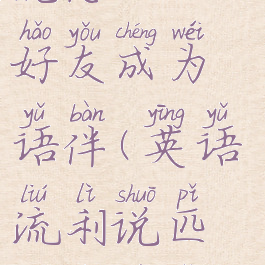 hǎo yǒu chéng wéi
好友成为
yǔ bàn yīng yǔ
语伴(英语
liú lì shuō pǐ
流利说匹